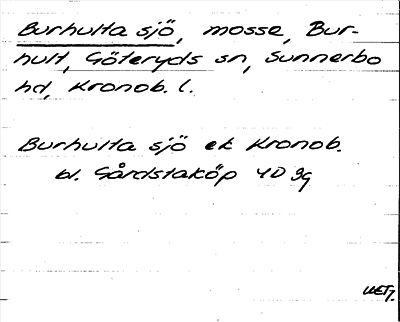 Burhulta sjö, mosse, Bur-
hult, Göteryds sn, Sunnerbo
hd, Kronob. l.
Burhulta sjö ek Kronob.
bl. Gårdstaköp 4D 9g